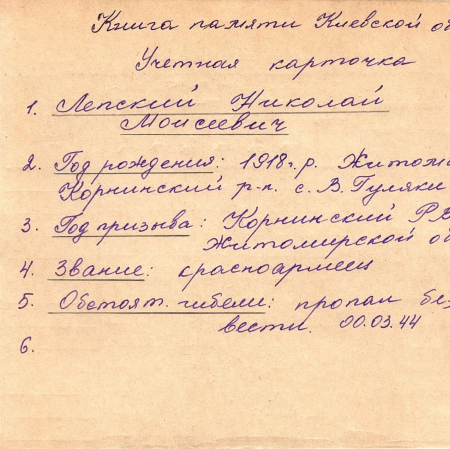 Книга памяти Киевской об
Учетная карточка
1. Лепский Николай
Моисеевич
2. Год рождения: 1918 г.р. Житом
Корнинский р-н. с. В. Гуляки
3. Год призыва: Корнинский РВ
Житомирской об
4. Звание: красноармеец
5. Обстоят. гибели: пропал без
вести. 00.03.44
6.